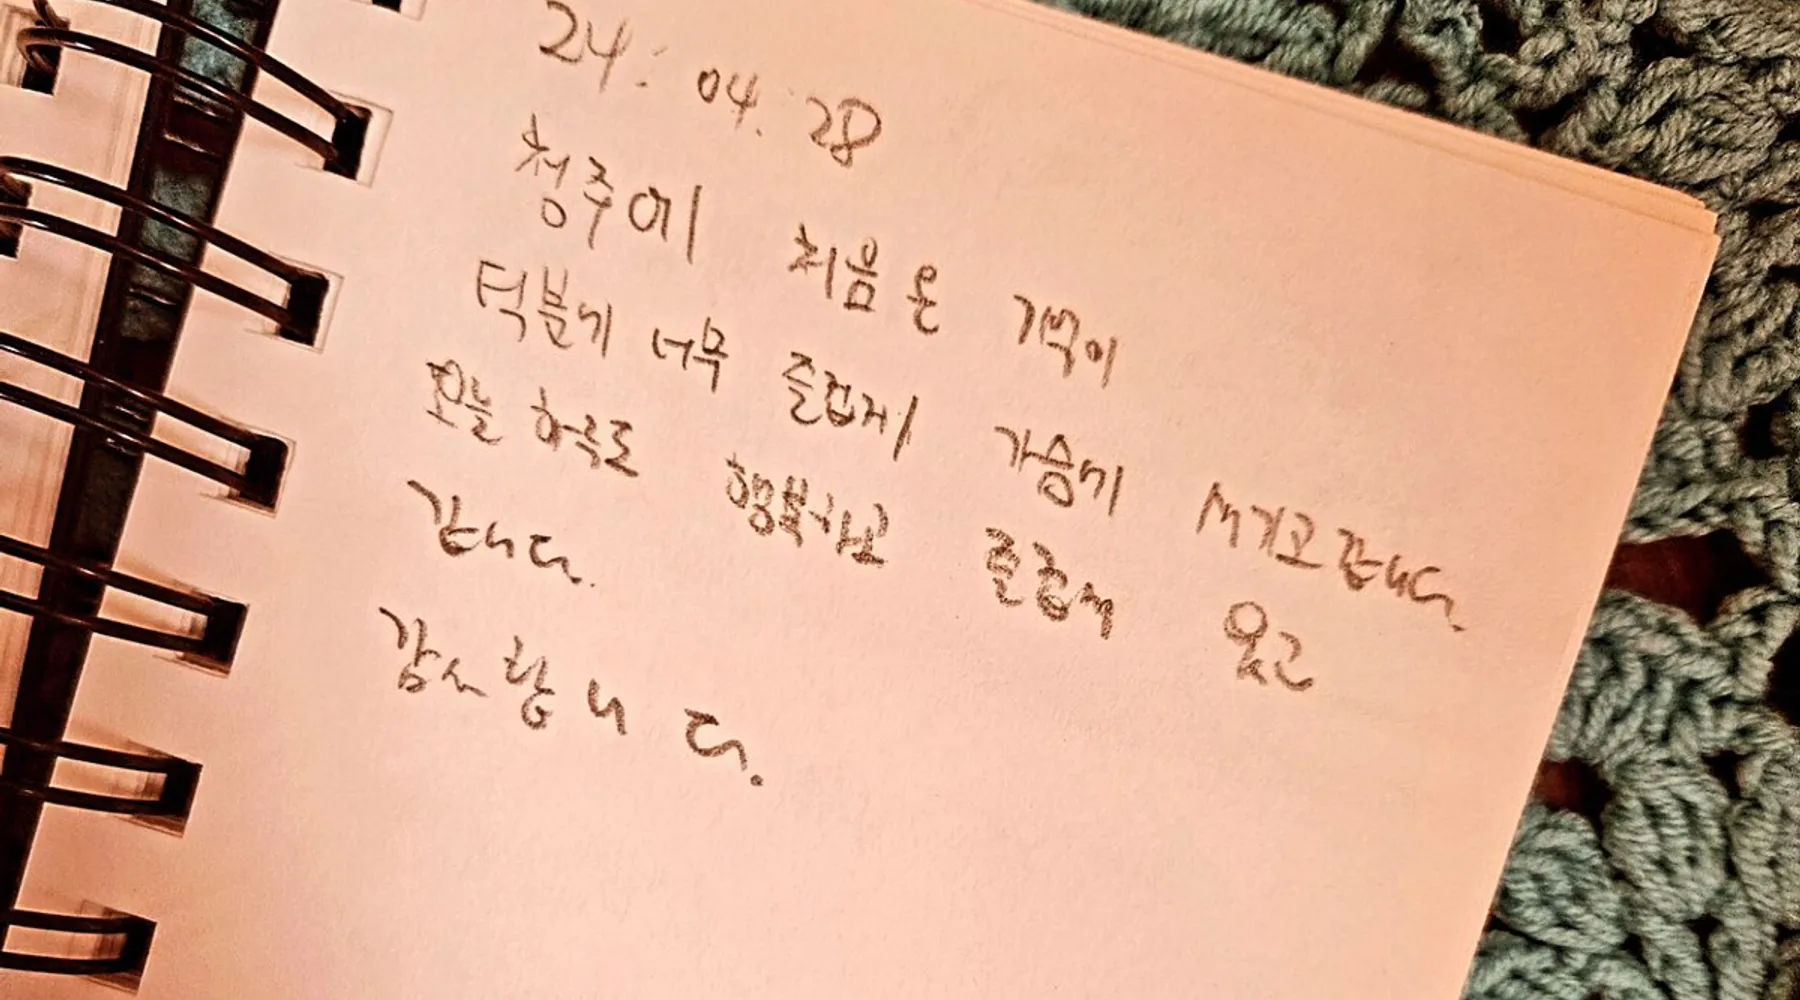 24. 04. 28
청주에 처음 온 기억이
덕분에 너무 즐겁게 가슴에 새기고 갑니다.
오늘 하루도 행복하고 즐겁게 웃고
갑니다.
감사합니다.